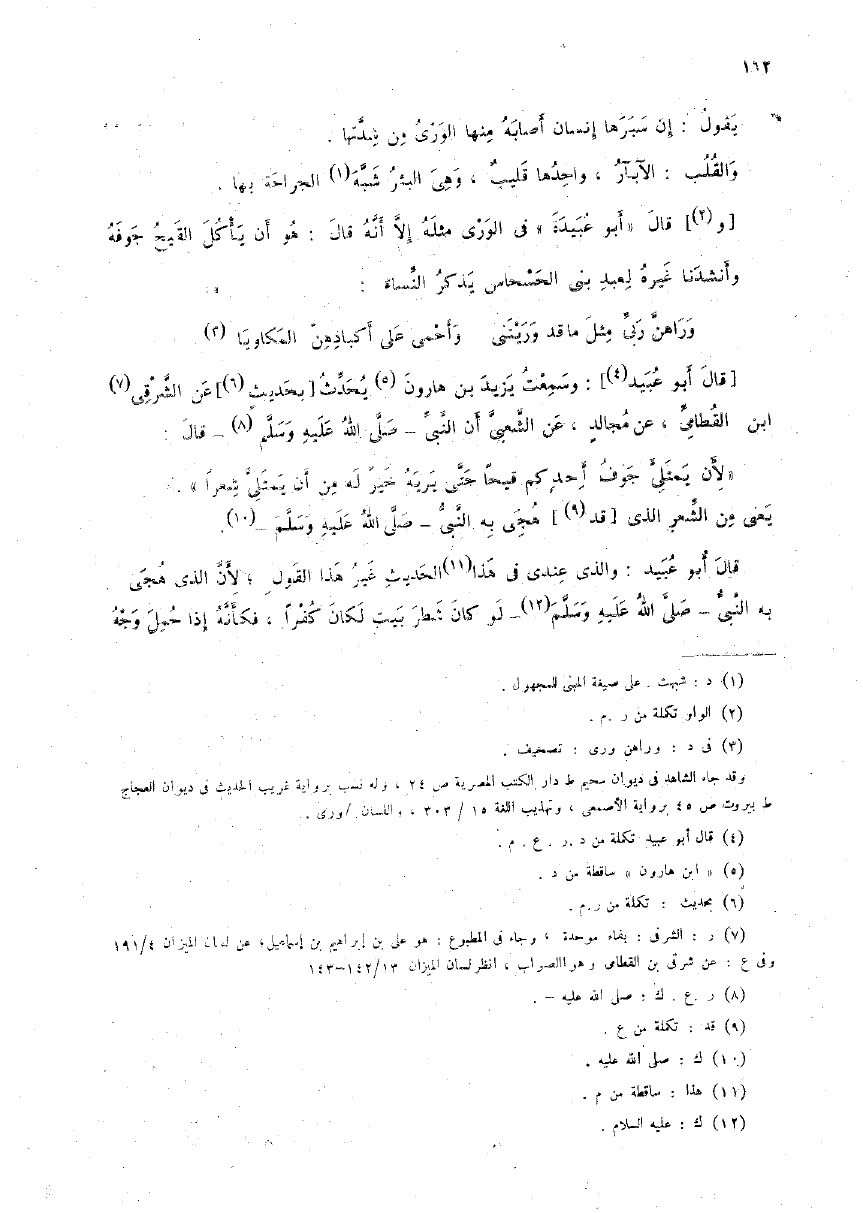 ١٦٢
يَقولُ : إن سَبَرَها إنسان أصابَهُ مِنها الوَرْىُ مِن شِدَّتها .
وَالقُلُب : الآبآرُ ، واحِدُها قَليبٌ ، وَهِىَ البئرُ شَبَّهَ (١) الجراحَة بها .
[ و (٢) ] قالَ « أبو عُبَيدَةَ » فى الوَرْى مثلَهُ إلاَّ أنَّهُ قالَ : هُو أن يَأْكُلَ القَيحُ جَوفَهُ
وأنشدَنا غَيرهُ لِعبدِ بنى الحَسْحاسِ يَذكرُ النِّساءَ :
وَرَاهنَّ رَبِّى مِثلَ ماقد وَرَيْنَنى وَأَحْمى عَلى أكبادِهِنّ المَكاويَا (٣)
[ قالَ أبو عُبَيد (٤) ] : وسَمِعْتُ يَزيدَ بن هارونَ (٥) يُحَدِّثُ [ بحَديثٍ (٦) ] عَن الشَّرْقِى (٧)
ابن القُطامِىِّ ، عن مُجالدٍ ، عَن الشَّعبىِّ أن النَّبىَّ – صَلَّى اللهُ عَلَيهِ وَسَلَّم (٨) – قالَ :
« لِأَن يَمتَلِئَ جَوفُ أَحدِكم قيحًا حَتَّى يَرِيَهُ خَيرٌ لَه مِن أن يَمتَلِئَ شِعراً » .
يَعنى مِن الشِّعرِ الذى [ قد (٩) ] هُجِىَ بِه النَّبىُّ – صَلَّى اللهُ عَلَيهِ وَسَلَّمَ – (١٠) .
قالَ أبو عُبَيد : والذى عِندى فى هَذا (١١) الحَديثِ غَيرُ هَذا القَولِ ؛ لأنَّ الذى هُجِىَ
به النَّبىُّ – صَلَّى اللهُ عَلَيهِ وَسَلَّمَ (١٢) – لَو كانَ شَطرَ بَيتٍ لَكانَ كُفْراً ، فكأنَّهُ إذا حُمِلَ وَجْهُ
(١) د : شبهت . على صيغة المبنى للمجهول .
(٢) الواو تكملة من ر . م .
(٣) فى د : وراهن ورى : تصحيف .
وقد جاء الشاهد فى ديوان سحيم ط دار الكتب المصرية ص ٢٤ ، وله نسب برواية غريب الحديث فى ديوان العجاج
ط بيروت ص ٤٥ برواية الأصمعى ، وتهذيب اللغة ١٥ / ٣٠٣ ، واللسان / ورى .
(٤) قال أبو عبيد تكملة من د . ر . ع . م .
(٥) « ابن هارون » ساقطة من د .
(٦) بحديث : تكملة من ر . م .
(٧) ر : الشرفى : بفاء موحدة ، وجاء فى المطبوع : هو على بن إبراهيم بن إسماعيل ؛ عن لسان الميزان ١٩١/٤
وفى ع : عن شرقى بن القطامى وهو الصواب ، انظر لسان الميزان ١٤٢/١٣–١٤٣
(٨) ر . ع . ك : صلى الله عليه – .
(٩) قد : تكملة من ع .
(١٠) ك : صلى الله عليه .
(١١) هذا : ساقطة من م .
(١٢) ك : عليه السلام .